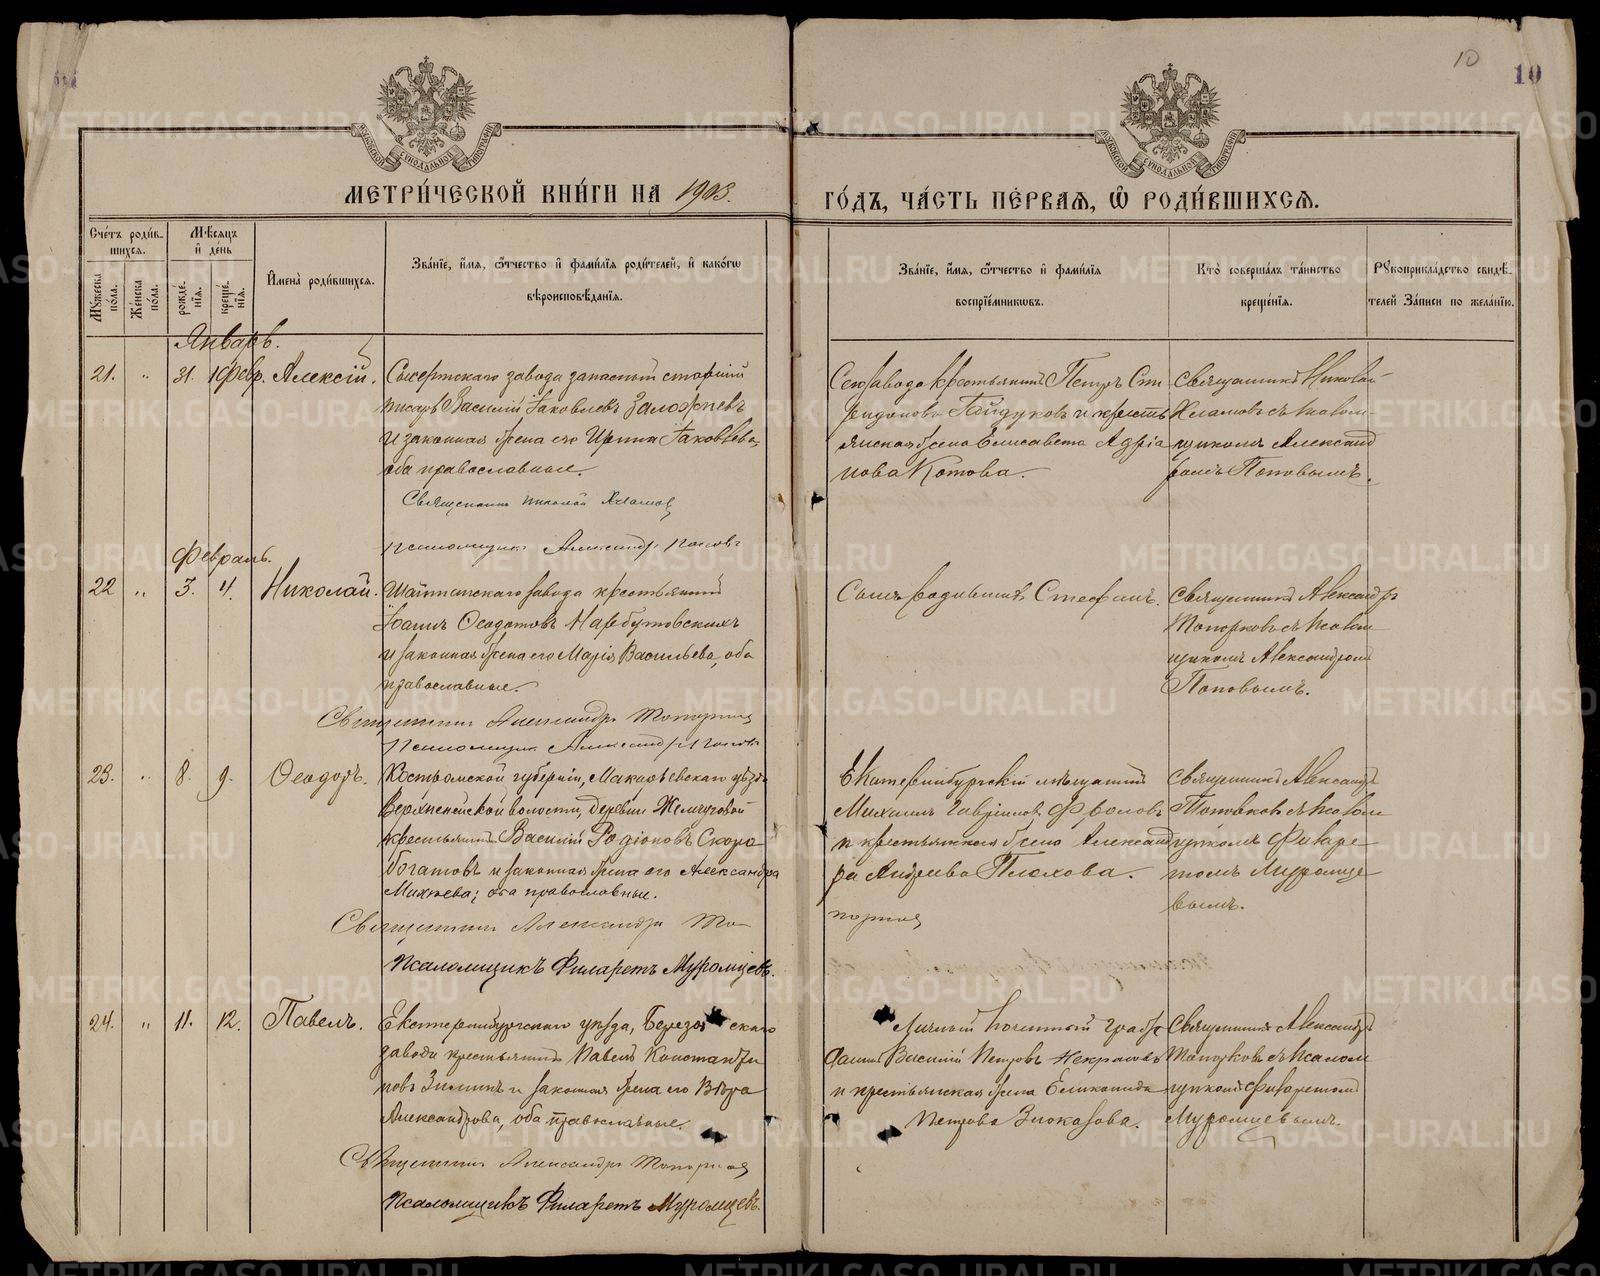 10
10
МЕТРИ́ЧЕСКОЙ КНИ́ГИ НА 1903.
ГО́ДЪ, ЧА́СТЬ ПЕ́РВАЯ, Ѡ РОДИ́ВШИХСЯ.
Сче́тъ роди́вшихся.
Му́жеска по́ла.
Же́нска по́ла.
Мѣ́сяцъ и де́нь
рожде́нїя.
креще́нїя.
Имена̀ роди́вшихся.
Зва́нїе, и́мя, ѻ́тчество и фами́лїя роди́телей, и како́гѡ
вѣроисповѣ́данїя.
Зва́нїе, и́мя, ѻ́тчество и фами́лїя
воспрїе́мникѡвъ.
Кто̀ соверша́лъ та́инство
креще́нїя.
Рꙋкоприкла́дство свидѣ́-
телей за́писи по жела́нїю.
Январь.
21. " 31. 1 Февр. Алексій.
Сысертскаго завода запасный старшій
писарь Василій Іаковлевъ
и законная жена его Ирина Іаковлева,
оба православные.
Священникъ Николай Хламовъ
Псаломщикъ Александръ Поповъ
Сего завода крестьянинъ Петръ Спи
ридоновъ Гайдуковъ и кресть
янская жена Елисавета Адріа
нова Котова.
Священникъ Николай
Хламовъ съ псалом-
щикомъ Александ
ромъ Поповымъ.
Февраль.
22 " 3. 4. Николай.
Шайтанскаго завода крестьянинъ
Іоаннъ Ѳеодотовъ Нарбутовскихъ
и законная жена его Марія Васильева, оба
православные.
Священникъ Александръ Топорковъ
Псаломщикъ Александръ Поповъ
Сынъ Стефанъ.
Священникъ Александръ
Топорковъ съ псалом
щикомъ Александромъ
Поповымъ.
23. " 8. 9. Ѳеодоръ.
Костромской губерніи, Макарьевскаго уѣзда
волости, деревни
крестьянинъ Василій Родіоновъ Скоро
богатовъ и законная жена его Александра
Михѣева; оба православные.
Священникъ Александръ То-
порковъ
Псаломщикъ Филаретъ Муромцевъ.
Екатеринбургскій мѣщанинъ
Михаилъ Гавріиловъ Фроловъ
и крестьянская жена Александ
ра Андреева Плохова.
Священникъ Александръ
Топорковъ съ псалом
щикомъ Филаре
томъ Муромце
вымъ.
24. " 11. 12. Павелъ.
Екатеринбургскаго уѣзда, Березовскаго
завода крестьянинъ Павелъ Константи
новъ Зиминъ и законная жена его Вѣра
Александрова, оба православные.
Священникъ Александръ Топорковъ
Псаломщикъ Филаретъ Муромцевъ.
Личный почетный граж
данинъ Василій Петровъ Некрасовъ
и крестьянская жена Еликонида
Петрова Злоказова.
Священникъ Александръ
Топорковъ съ псалом
щикомъ Филаретомъ
Муромцевымъ.
METRIKI.GASO-URAL.RU